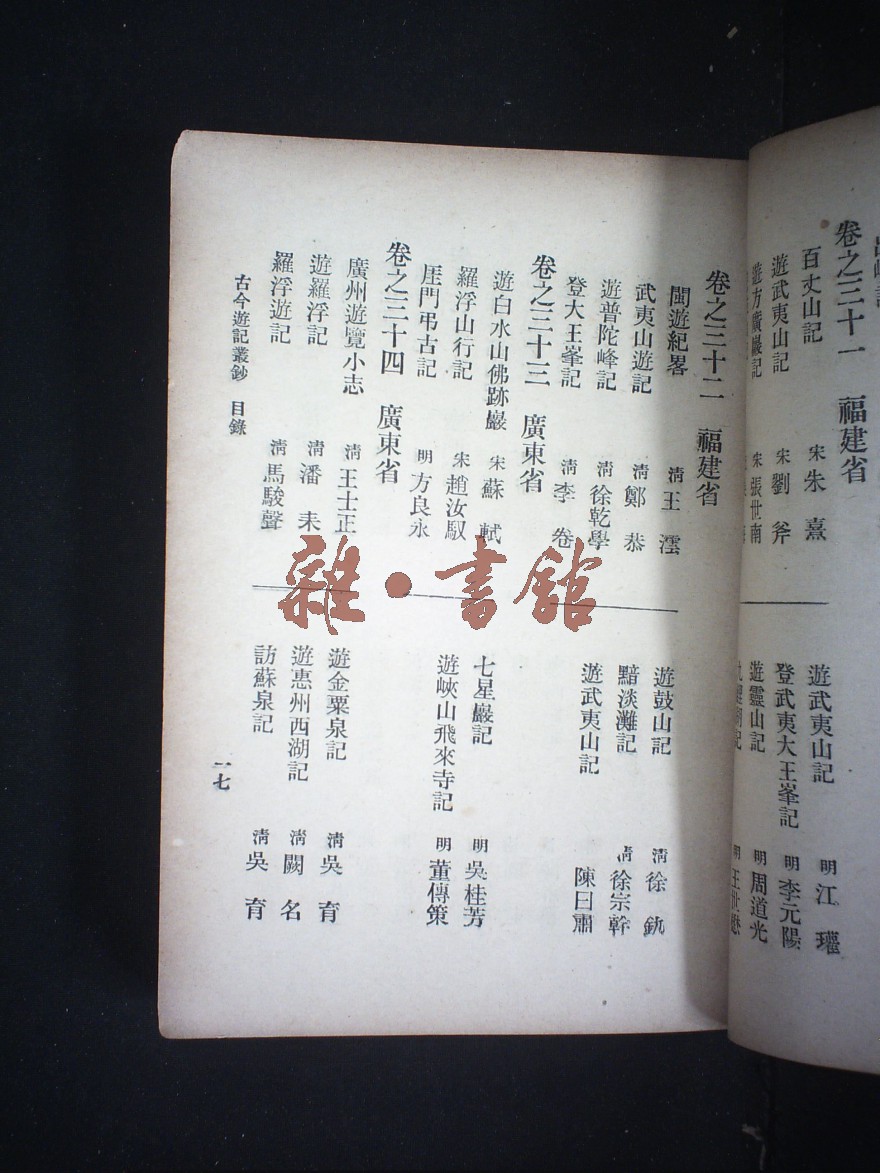 卷之三十一 福建省
百丈山記 宋 朱熹
遊武夷山記 宋 劉斧
遊方廣巖記 宋 張世南
遊武夷山記 明 江瓘
登武夷大王峯記 明 李元陽
遊靈山記 明 周道光
明 王世懋
卷之三十二 福建省
閩遊紀畧 清 王澐
武夷山遊記 清 鄭恭
遊普陀峰記 清 徐乾學
登大王峯記 清 李卷
遊鼓山記 清 徐釚
黯淡灘記 清 徐宗幹
遊武夷山記 陳曰肅
卷之三十三 廣東省
遊白水山佛跡巖 宋 蘇軾
羅浮山行記 宋 趙汝馭
厓門弔古記 明 方良永
七星巖記 明 吳桂芳
遊峽山飛來寺記 明 董傳策
卷之三十四 廣東省
廣州遊覽小志 清 王士正
遊羅浮記 清 潘耒
羅浮遊記 清 馬駿聲
遊金粟泉記 清 吳育
遊惠州西湖記 清 闕名
訪蘇泉記 清 吳育
古今遊記叢鈔 目錄
一七
雜·書館